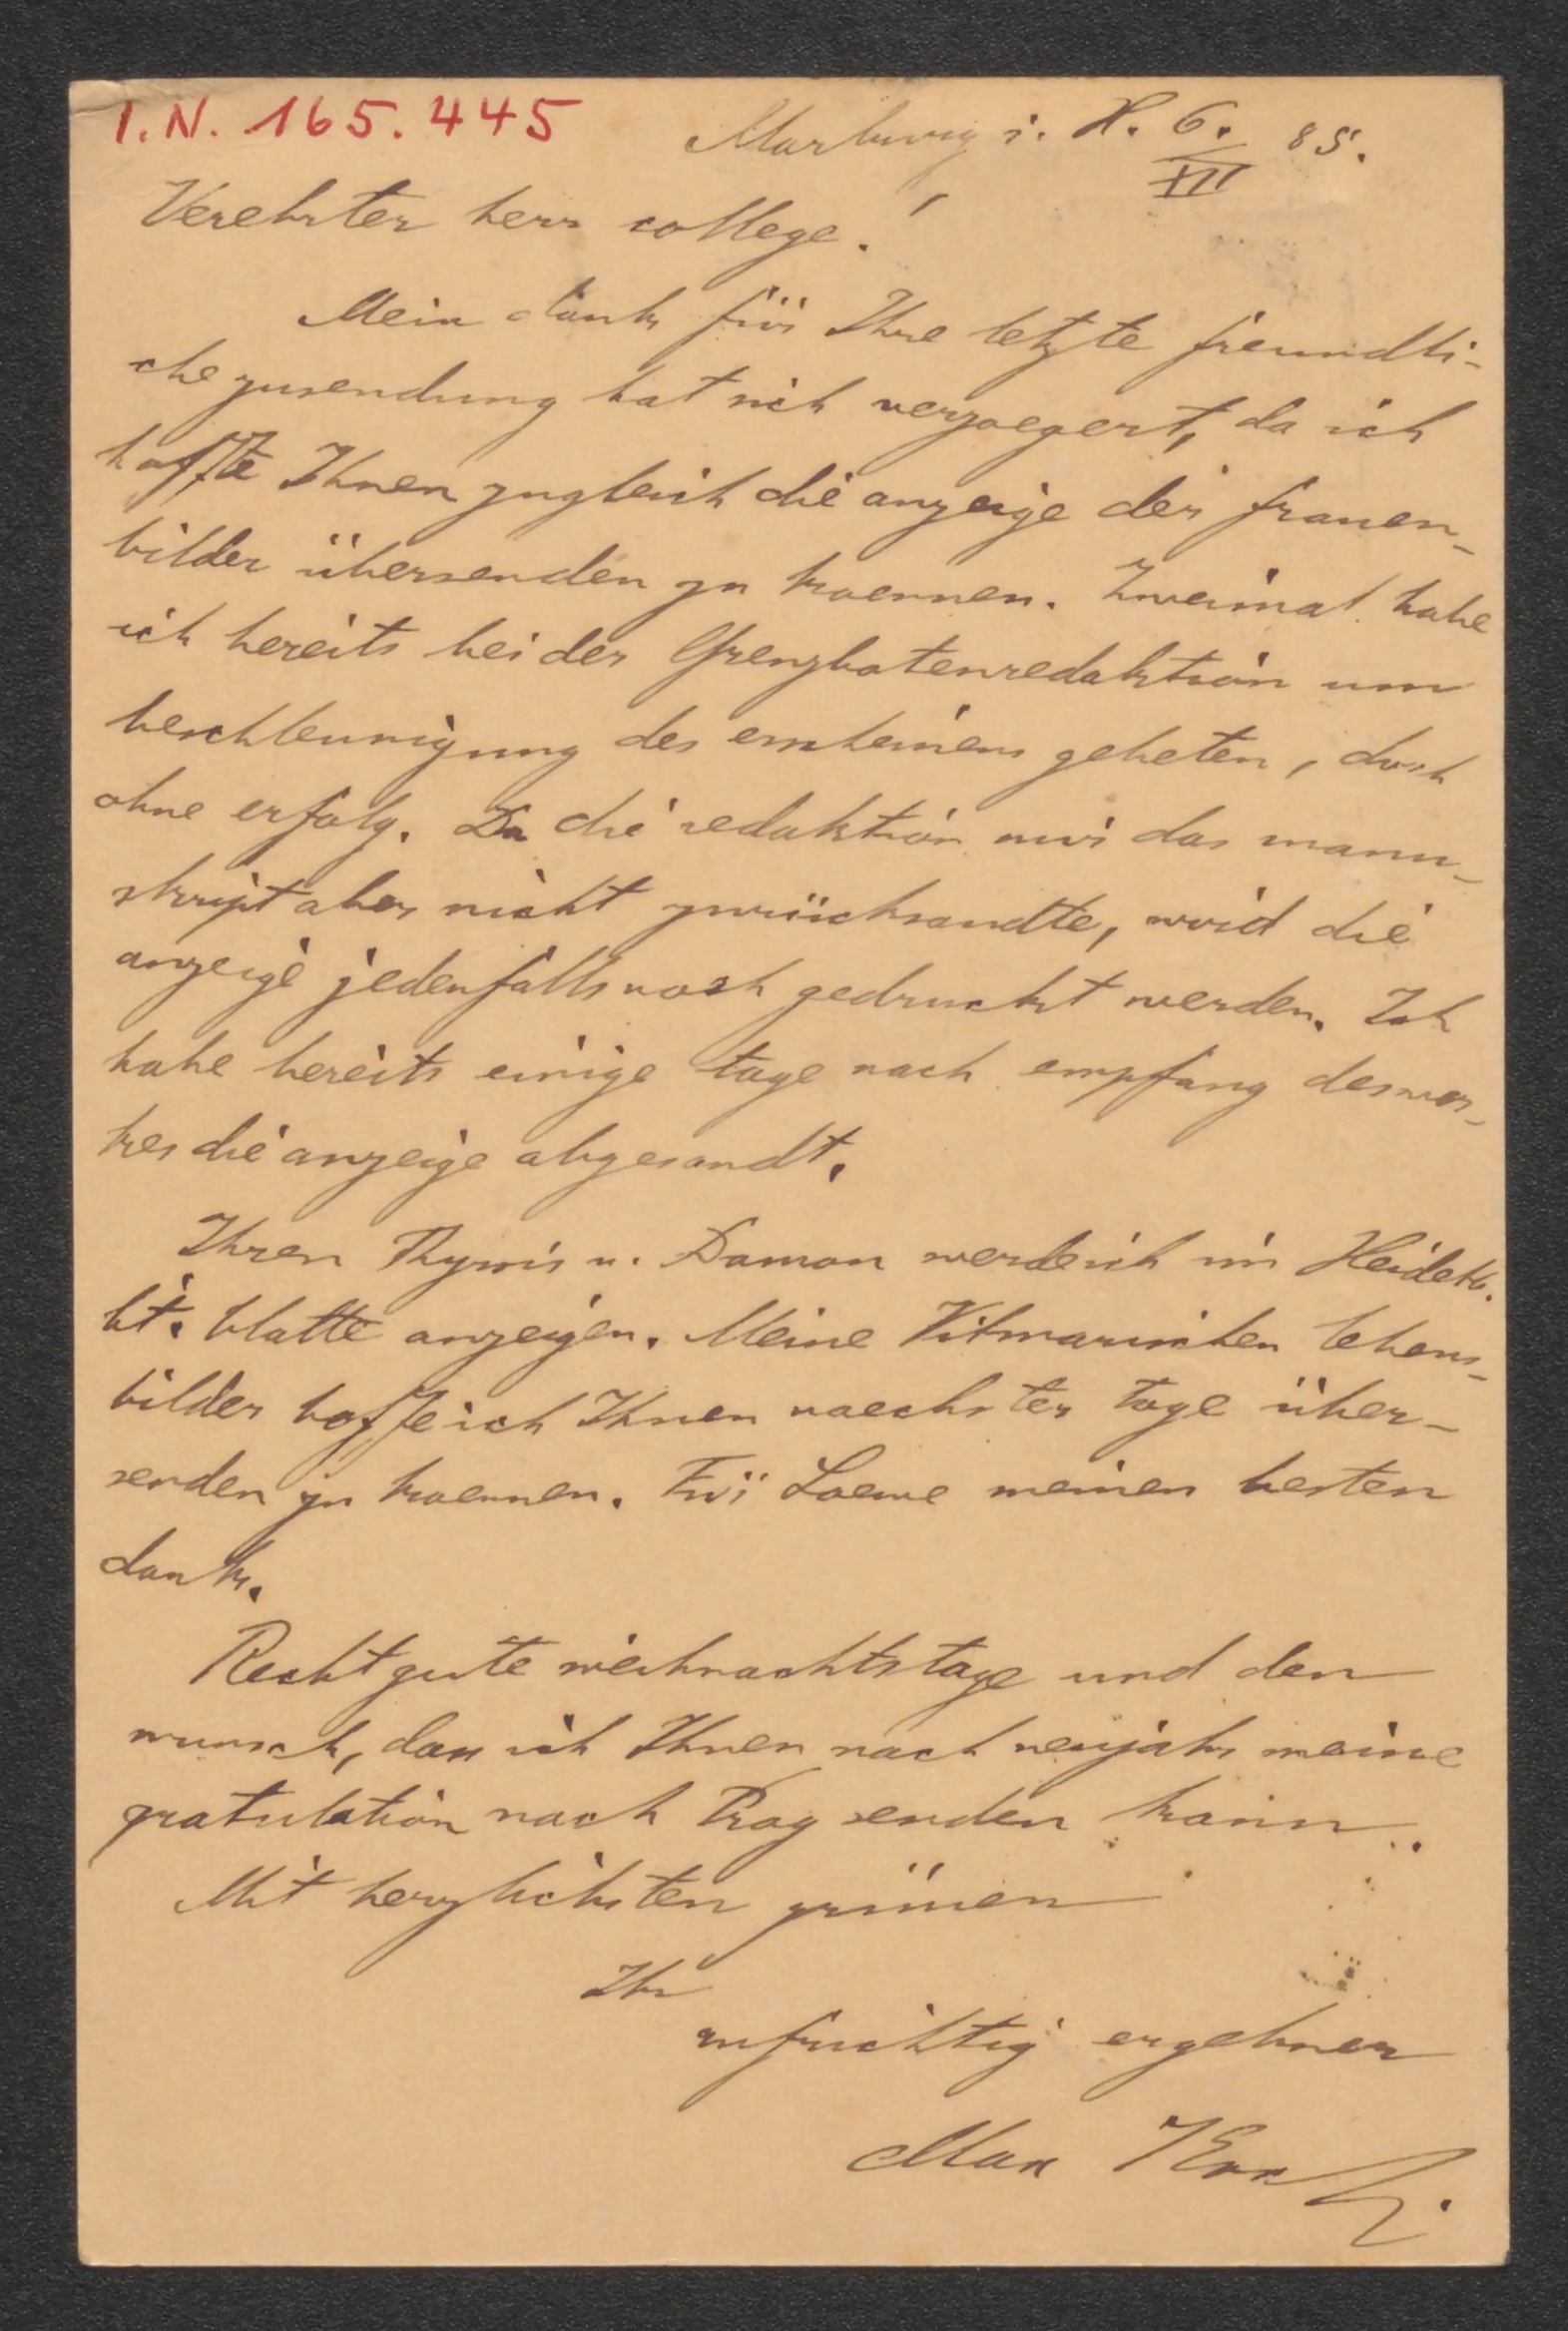 I.N. 165.445
Marburg i. H. 6. XII 85.
Verehrter herr college!
Mein dank für Ihre letzte freundli-
che zusendung hat sich verzoegert, da ich
hoffte Ihnen zugleich die anzeige der frauen-
bilder übersenden zu koennen. Zweimal habe
ich bereits bei der Grenzbotenredaktion um
beschleunigung des erscheinens gebeten, doch
ohne erfolg. Da die redaktion mir das manu-
skript aber nicht zurücksandte, wird die
anzeige jedenfalls noch gedruckt werden. Ich
habe bereits einige tage nach empfang des wer-
kes die anzeige abgesandt.
Ihren Thyrsis u. Damon werde ich im Heidelb.
lit. blatte anzeigen. Meine Vilmarischen lebens-
bilder hoffe ich Ihnen naechster tage über-
senden zu koennen. Für Loewe meinen besten
dank.
Recht gute weihnachtstage und den
wunsch, dass ich Ihnen nach neujahr meine
gratulation nach Prag senden kann.
Mit herzlichsten grüssen
Ihr
aufrichtig ergebner
Max Koch.